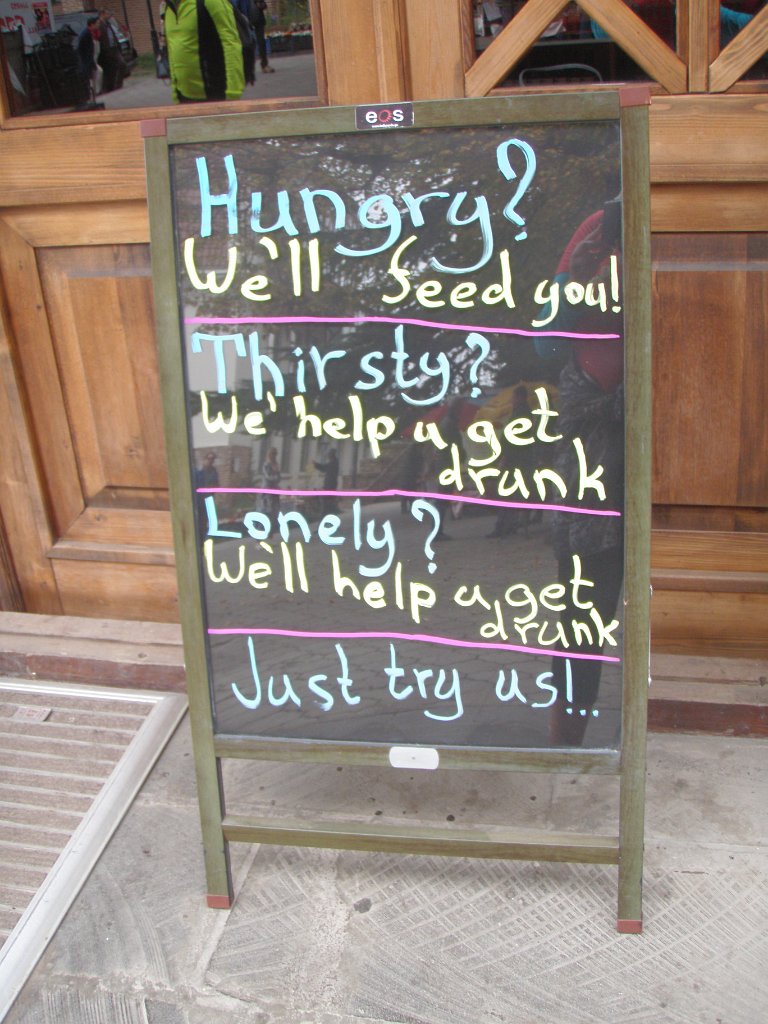 eos
Hungry?
We'll feed you!
Thirsty?
We' help u get
drunk
Lonely?
We'll help u get
drunk
Just try us!..